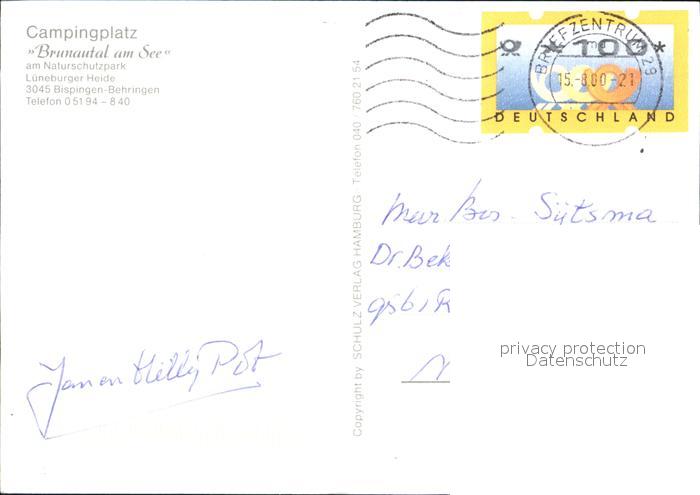 Campingplatz
»Brunautal am See«
am Naturschutzpark
Lüneburger Heide
3045 Bispingen-Behringen
Telefon 0 51 94 – 8 40
Copyright by SCHULZ VERLAG HAMBURG · Telefon 040 / 760 21 54
*100*
DEUTSCHLAND
BRIEFZENTRUM 29
15.-8.00-21
Sütsma
Dr. Bek
privacy protection
Datenschutz
Jan en Willy Pot